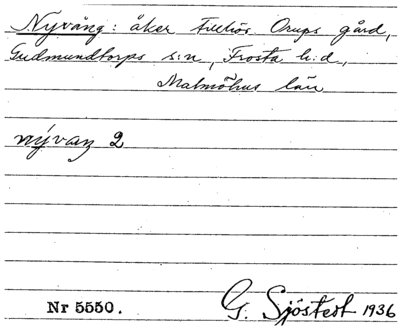 Nyvång: åker tillhör Orups gård,
Gudmundtorps s:n, Frosta h:d,
Malmöhus län
nývaŋ 2
Nr 5550.
G. Sjöstedt 1936